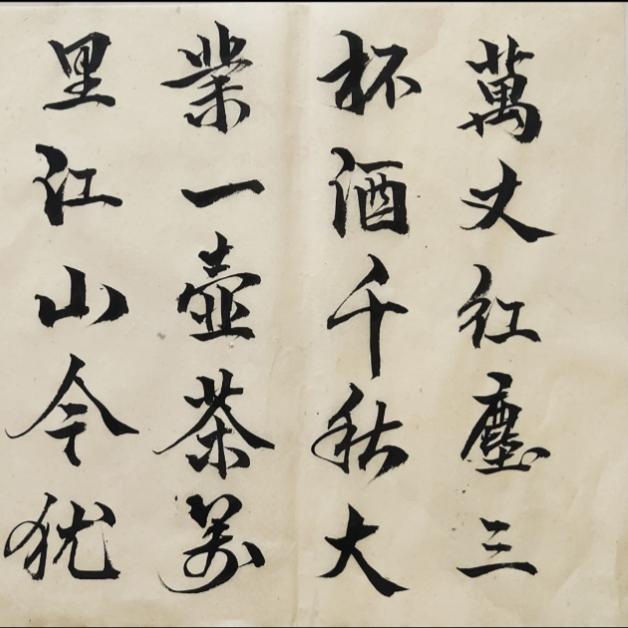 萬丈紅塵三
杯酒千秋大
業一壺茶萬
里江山今猶